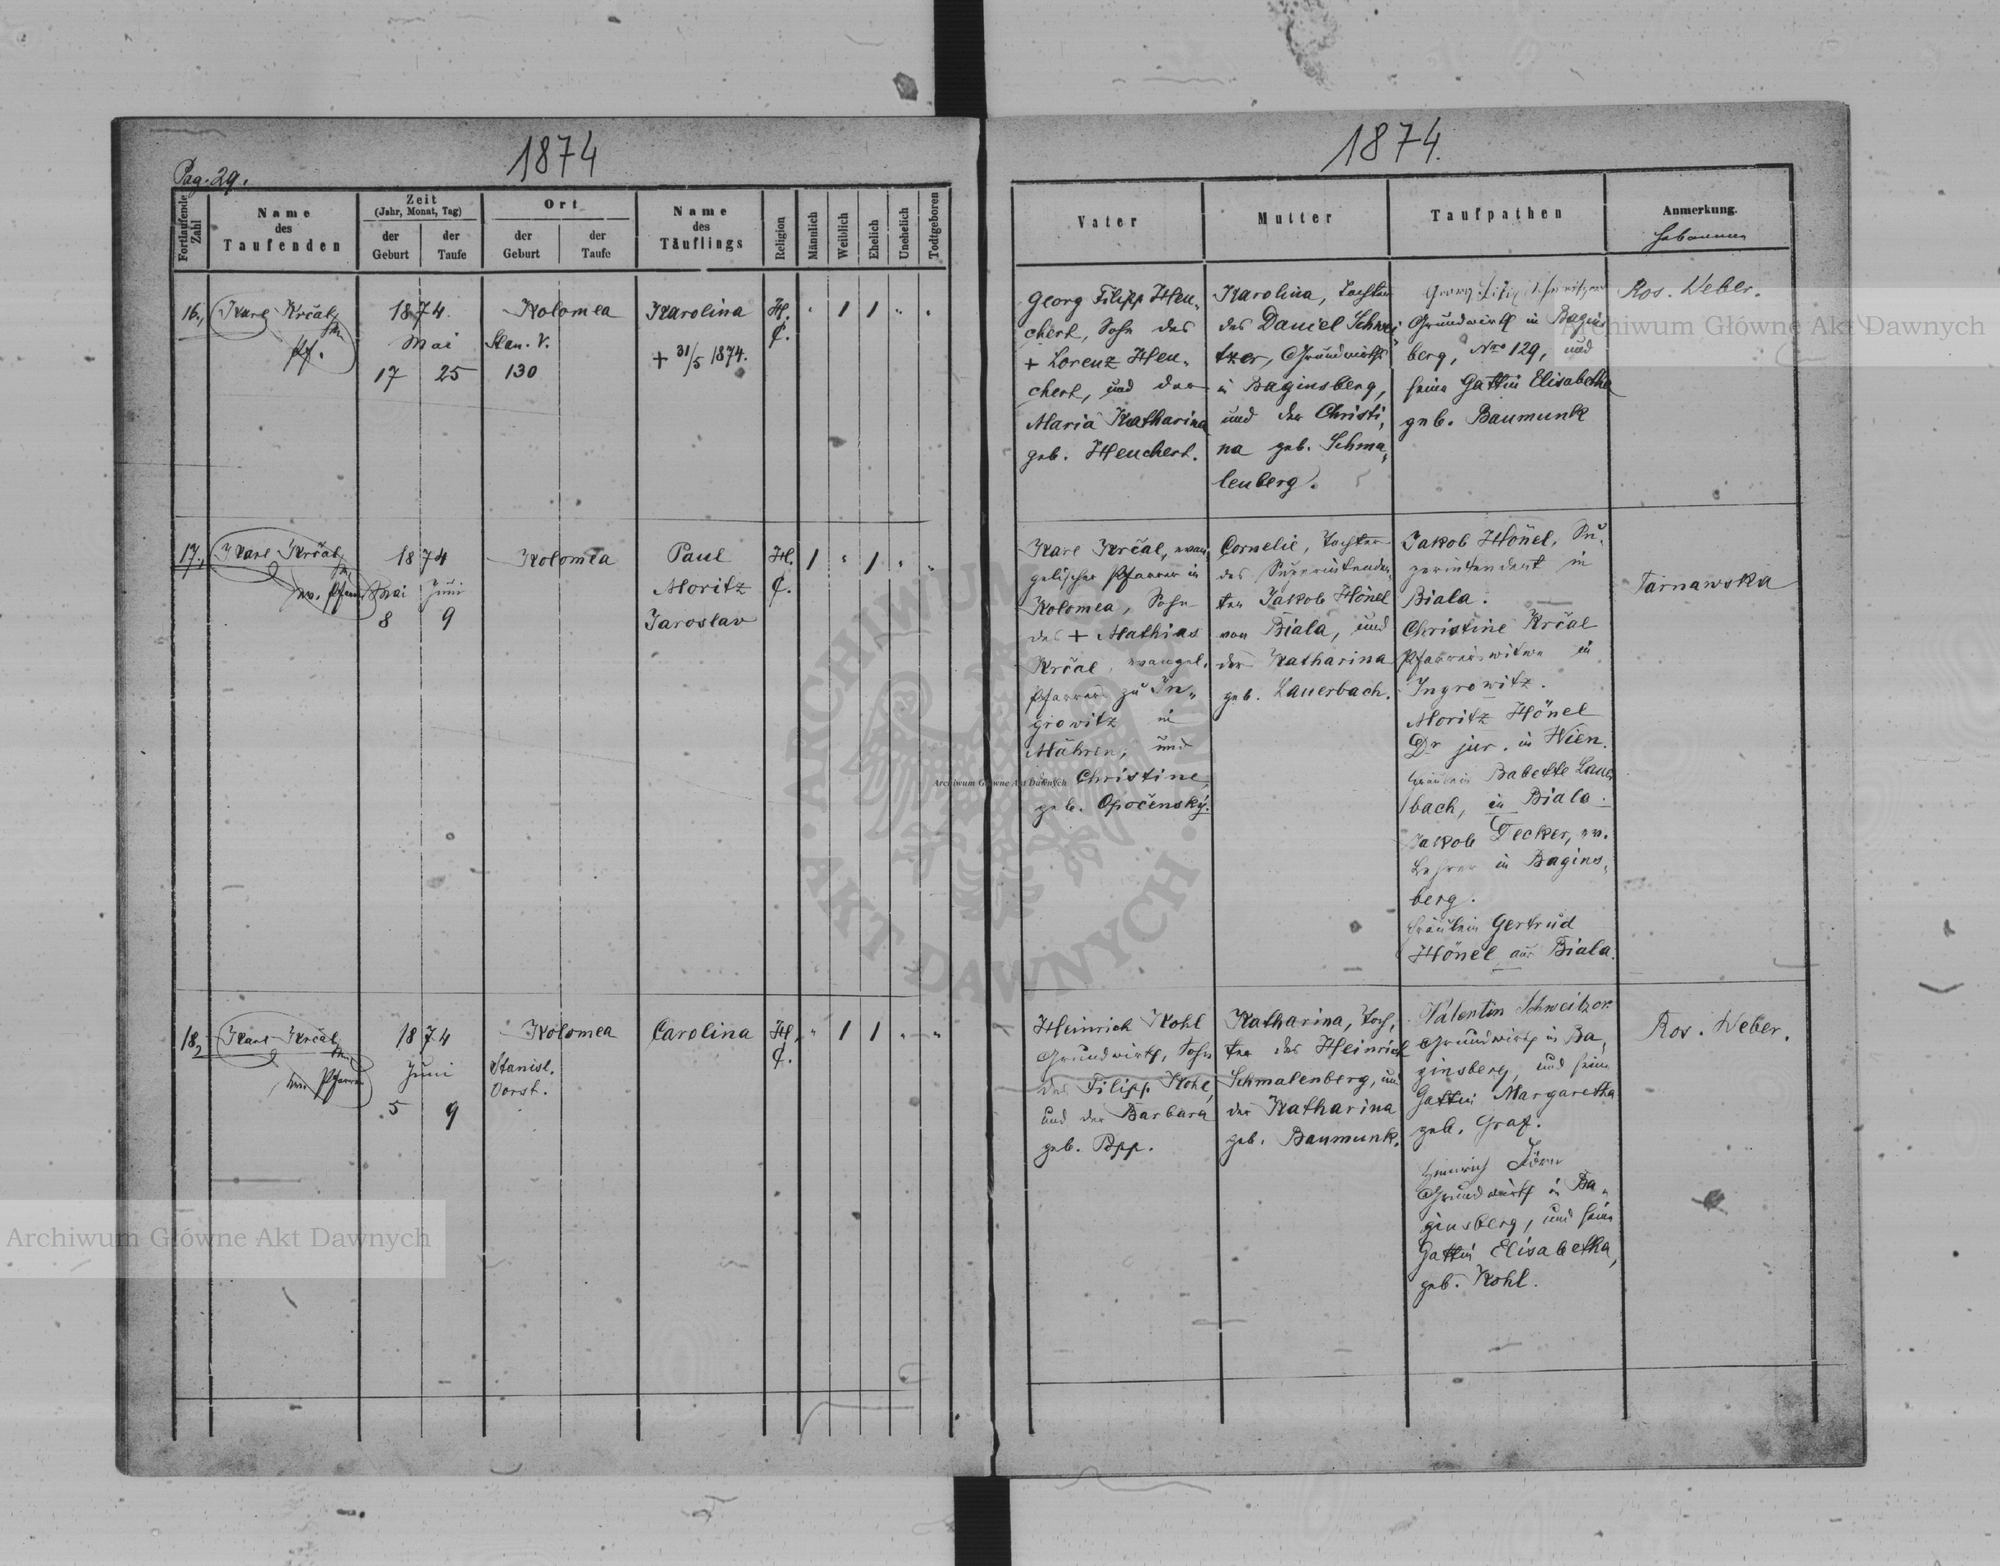 1874
1874.
Pag. 29.
Fortlaufende Zahl
Name des Taufenden
Zeit (Jahr, Monat, Tag)
der Geburt
der Taufe
Ort
der Geburt
der Taufe
Name des Täuflings
Religion
Männlich
Weiblich
Ehelich
Unehelich
Todtgeboren
Vater
Mutter
Taufpathen
Anmerkung.
Hebamme
16.,
Karl Krčal
Pf.
1874.
Mai
17 25
Kolomea
Stan. V.
130
Karolina
+ 31/5 1874.
H.
C.
Georg Filipp Heu„
chert, Sohn des
+ Lorenz Heu„
chert, und der
Maria Katharina
geb. Heuchert.
Karolina, Tochter
des Daniel Schwei„
tzer, Grundwirth
in Baginsberg,
und der Christi„
na geb. Schma„
lenberg.
Georg Schweitzer
Grundwirth in Bagins„
berg, Nro 129, und
seine Gattin Elisabetha
geb. Baumunk
Ros. Weber.
17.,
Karl Krčal
ev. Pfarrer
1874
Mai Juni
8 9
Kolomea
Paul
Moritz
Jaroslav
H.
C.
Karl Krčal, evan„
gelischer Pfarrer in
Kolomea, Sohn
des + Mathias
Krčal, evangel.
Pfarrers zu In„
growitz in
Mähren, und
Christine
geb. Opočenský.
Cornelie, Tochter
des Superintenden„
ten Jakob Hönel
von Biala, und
der Katharina
geb. Lauerbach.
Jakob Hönel, Su„
perintendent in
Biala.
Christine Krčal
Pfarrerswitwe in
Ingrowitz.
Moritz Hönel
Dr jur. in Wien.
Fräulein Babette Lauer
bach, in Biala.
Jakob Decker, ev.
Lehrer in Bagins„
berg.
Fräulein Gertrud
Hönel aus Biala.
Tarnawska
18.,
Karl Krčal
Pfarrer
1874
Juni
5 9
Kolomea
Stanisl.
Vorst.
Carolina
H.
C.
Heinrich Kohl
Grundwirth, Sohn
des Filipp Kohl,
und der Barbara
geb. Popp.
Katharina, Toch„
ter des Heinrich
Schmalenberg, und
der Katharina
geb. Baumunk.
Valentin Schweitzer
Grundwirth in Ba„
ginsberg, und seine
Gattin Margaretha
geb. Graf.
Heinrich
Grundwirth in Ba„
ginsberg, und seine
Gattin Elisabetha,
geb. Kohl.
Ros. Weber.
Archiwum Główne Akt Dawnych
Archiwum Główne Akt Dawnych
Archiwum Główne Akt Dawnych
ARCHIWUM GŁÓWNE AKT DAWNYCH